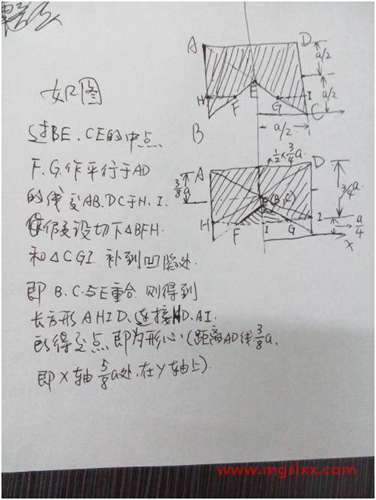 如图
过BE、CE的中点
F、G作平行于AD
的线交AB、DC于H、I.
假设切下△BFH
和△CGI 补到凹陷处
即B、C与E重合 则得到
长方形AHID、连接HD、AI.
所得交点即为形心.(距离AD线3/8a.
即X轴 5/8a处.在Y轴上)
A
D
a/2
H
F
E
G
I
a/2
C
B
a/2
1/2×3/4a
3/8a
A
D
3/4a
H
F
I
G
I
a/4
x
www.mgslxx.com